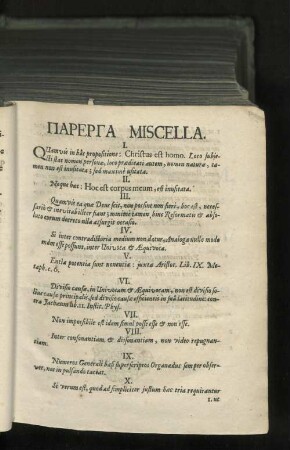 ΠΑΡΕΡΓΑ MISCELLA.
I.
Quamvis in hâc propositione: Christus est homo. Loco subje-
cti stat nomen personæ, loco prædicati autem, nomen naturæ, ta-
men non est inusitata; sed maximè usitata.
II.
Neque hæc: Hoc est corpus meum, est inusitata.
III.
Quamvis ea quæ Deus scit, non possint non fieri, hoc est, neces-
sariò & inevitabiliter fiant; minimè tamen hinc Reformati & abso-
luto eorum decreto
IV.
Si inter contradictoria medium non datur, Analoga nullo modo
dari posse, inter Univoca & Æquivoca.
V.
Entia potentia sunt nonentia: juxta Aristot. Lib. IX. Me-
taph. c. 6.
VI.
Divisio causæ, in Univocam & Æquivocam, non est divisio so-
lius causæ principalis, sed divisio causæ efficientis in suâ latitudine: con-
tra lib. II. Instit. Phys.
VII.
Non impossibile est idem simul posse esse & non esse.
VIII.
Inter consonantiam, & dissonantiam, non video repugnan-
tiam.
IX.
Numeros Generali basi superscriptos Organædus semper obser-
vet, nec in pulsando taceat.
X.
Si verum est, quod ad simpliciter justum hæc tria requirantur
1. ut